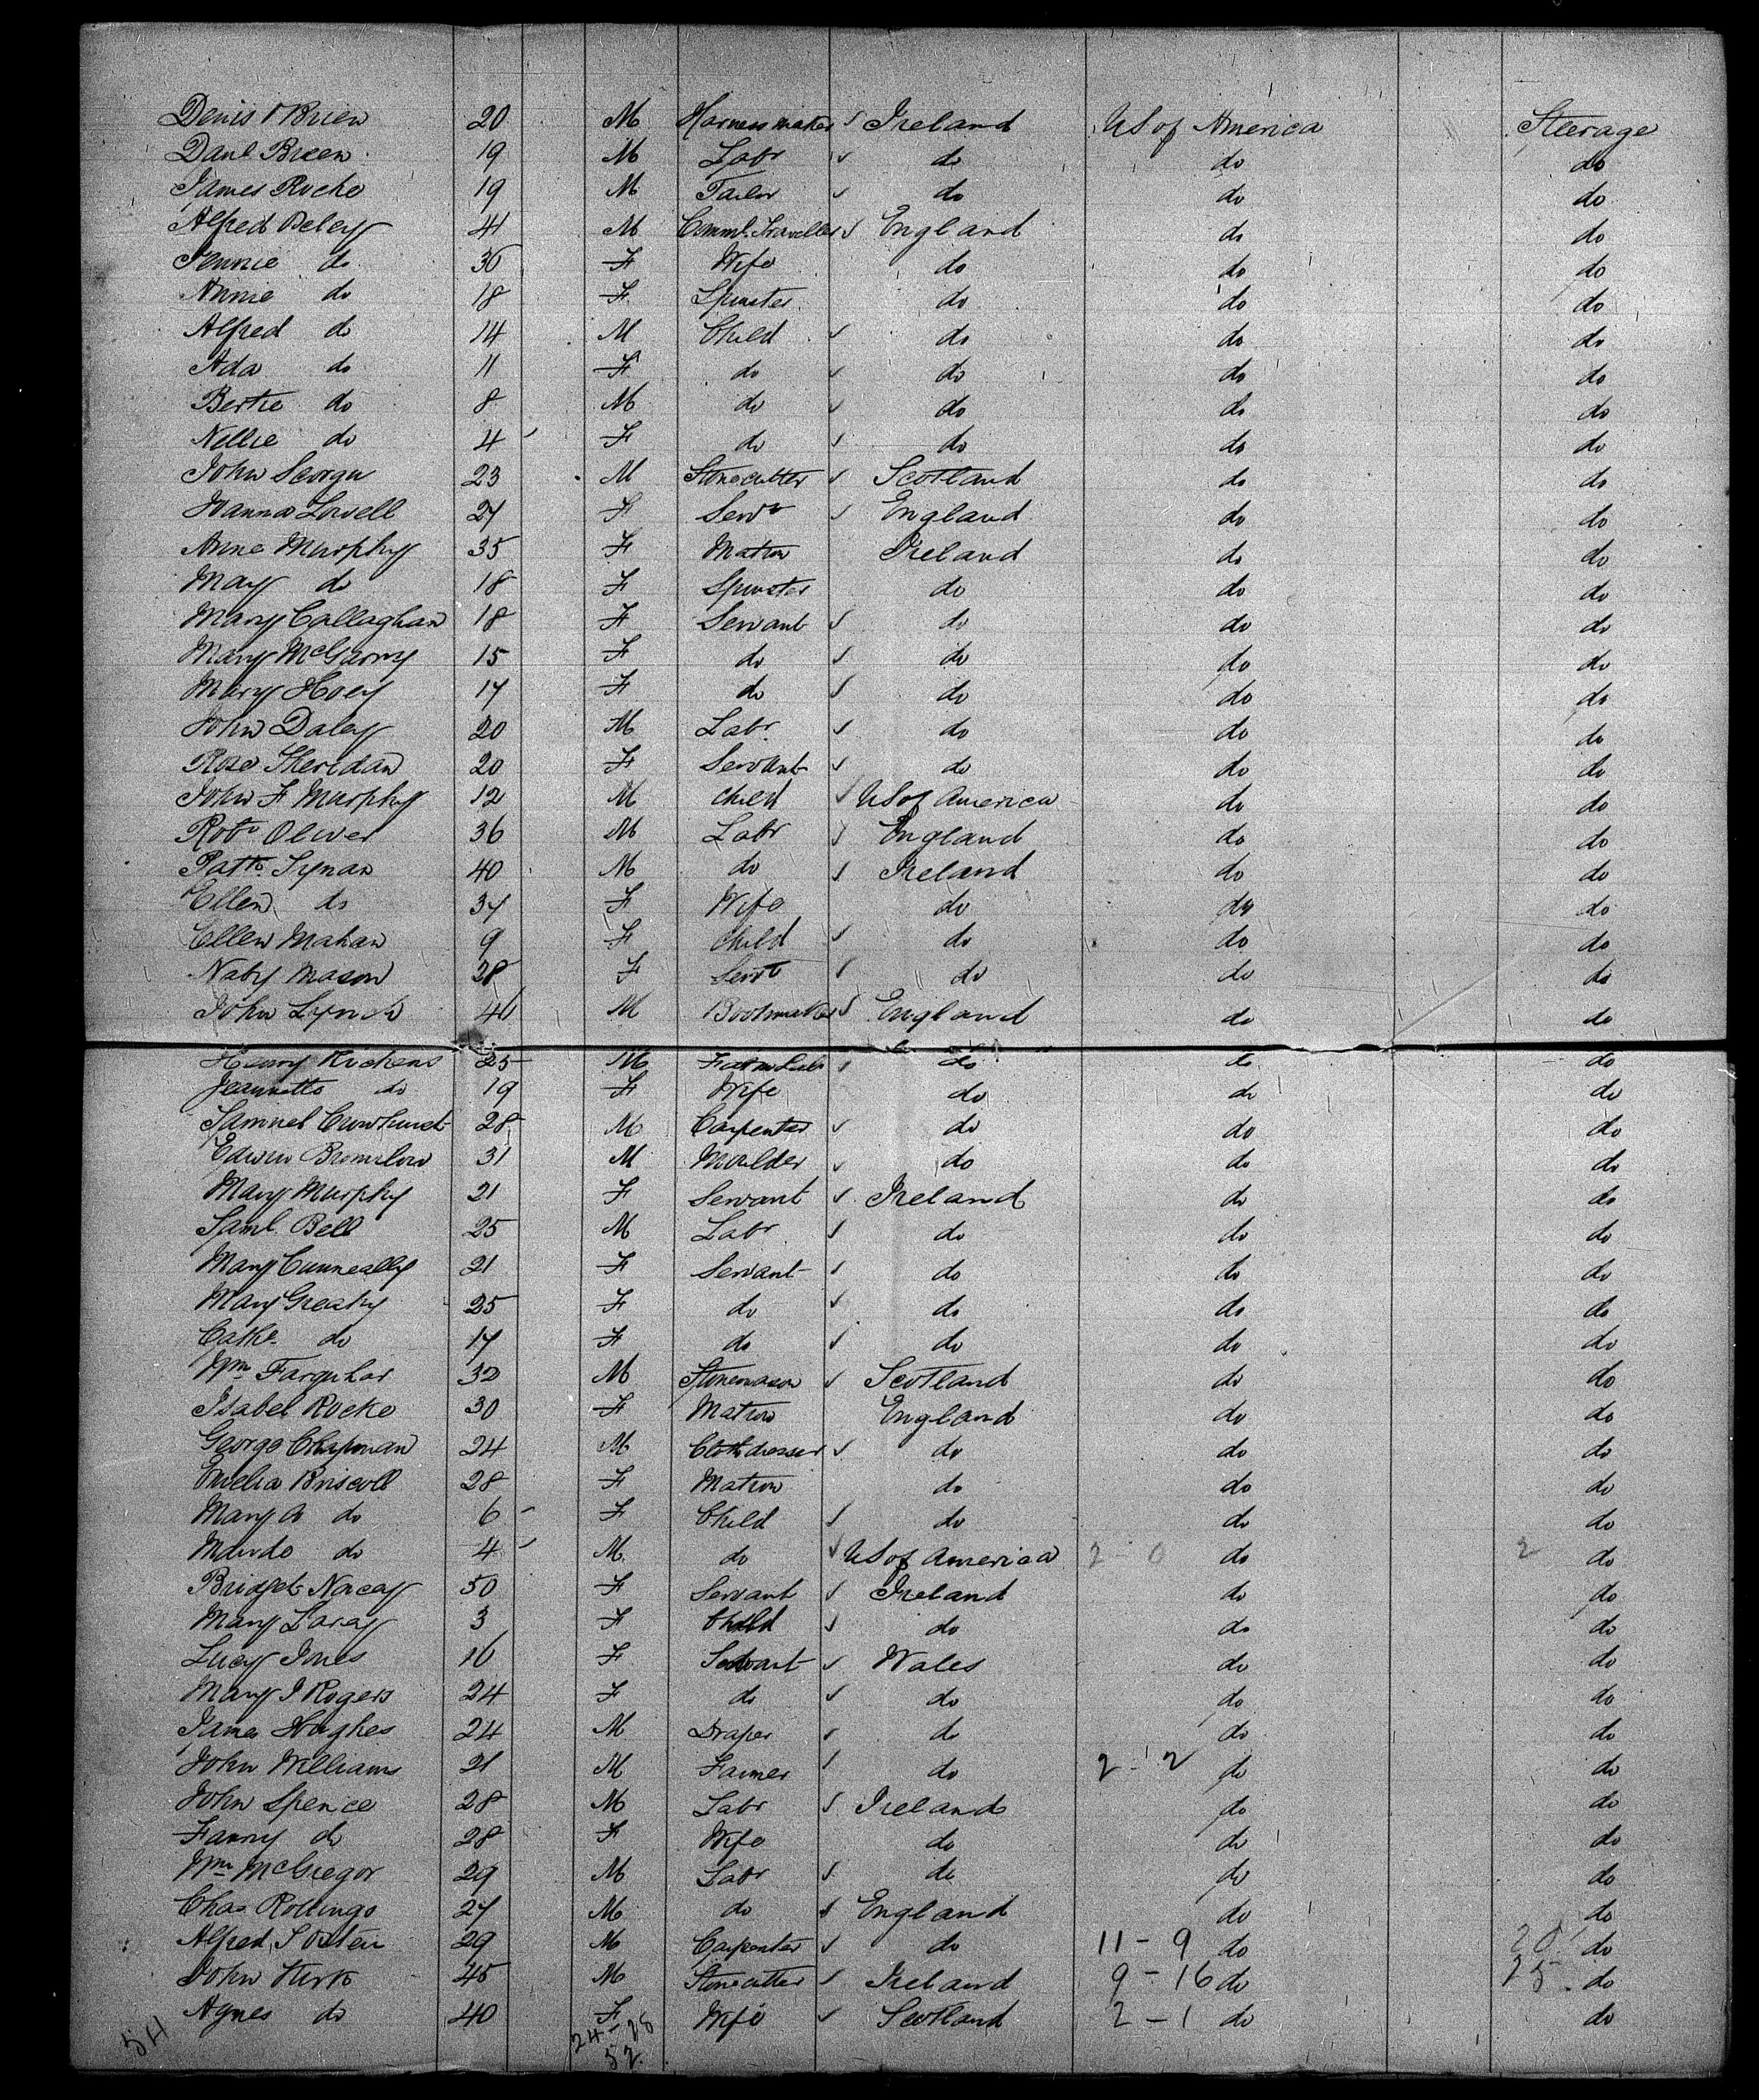 Denis O'Brien 20 M Harness maker ✓ Ireland US of America Steerage
Danl Breen 19 M Labr ✓ do do do
James Roche 19 M Tailor ✓ do do do
Alfred Deley 41 M Comml. Traveller ✓ England do do
Jennie do 36 F Wife do do do
Annie do 18 F Spinster do do do
Alfred do 14 M Child ✓ do do do
Ada do 11 F do ✓ do do do
Bertie do 8 M do ✓ do do do
Nellie do 4 F do ✓ do do do
John 23 M Stonecutter ✓ Scotland do do
Hanna Lowell 27 F Servt ✓ England do do
Anne Murphy 35 F Matron Ireland do do
May do 18 F Spinster do do do
Mary Callaghan 18 F Servant ✓ do do do
Mary McGarry 15 F do ✓ do do do
Mary Hoey 17 F do ✓ do do do
John Daley 20 M Labr ✓ do do do
Rose Sheridan 20 F Servant ✓ do do do
John F Murphy 12 M Child ✓ US of America do do
Robt Oliver 36 M Labr ✓ England do do
Patk. Synan 40 M do ✓ Ireland do do
Ellen do 37 F Wife do do do
Ellen Mahan 9 F Child ✓ do do do
Naby Mason 28 F Servt ✓ do do do
John Lynch 46 M Bootmaker ✓ England do do
Henry 25 M Farm Labr ✓ do do do
Jeannette do 19 F Wife do do do
Samuel Crowhurst 28 M Carpenter ✓ do do do
Edwin Bromilow 31 M Moulder ✓ do do do
Mary Murphy 21 F Servant ✓ Ireland do do
Saml. Bell 25 M Labr ✓ do do do
Mary Cunneally 21 F Servant ✓ do do do
Mary Greaty 25 F do ✓ do do do
Cathe. do 17 F do ✓ do do do
Wm Farquhar 32 M Stonemason ✓ Scotland do do
Isabel Rocke 30 F Matron England do do
George Chapman 24 M Clothdresser ✓ do do do
Emelia Briscoll 28 F Matron do do do
Mary A do 6 F Child ✓ do do do
do 4 M do ✓ US of America 2 - 0 do 2 do
Bridget 50 F Servant ✓ Ireland do do
Mary 3 F Child ✓ do do do
Lucy Jones 16 F Servant ✓ Wales do do
Mary J Rogers 24 F do ✓ do do do
James Hughes 24 M Draper ✓ do do do
John Williams 21 M Farmer ✓ do 2 - 2 do do
John Spence 28 M Labr ✓ Ireland do do
Fanny do 28 F Wife do do do
Wm McGregor 29 M Labr ✓ do do do
Chas Rollings 27 M do ✓ England do do
Alfred 29 M Carpenter ✓ do 11 - 9 do 20 do
John Kirk 45 M Stonecutter ✓ Ireland 9 - 16 do 25 do
Agnes do 40 F Wife ✓ Scotland 2 - 1 do do
54 24 - 28
52